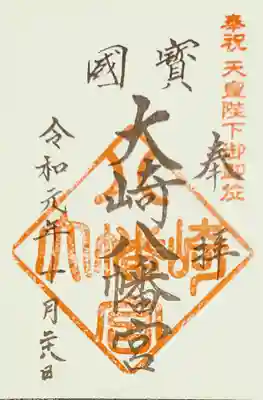 奉祝 天皇陛下御即位
奉拝
國寶
大崎八幡宮
令和元年十月廿八日